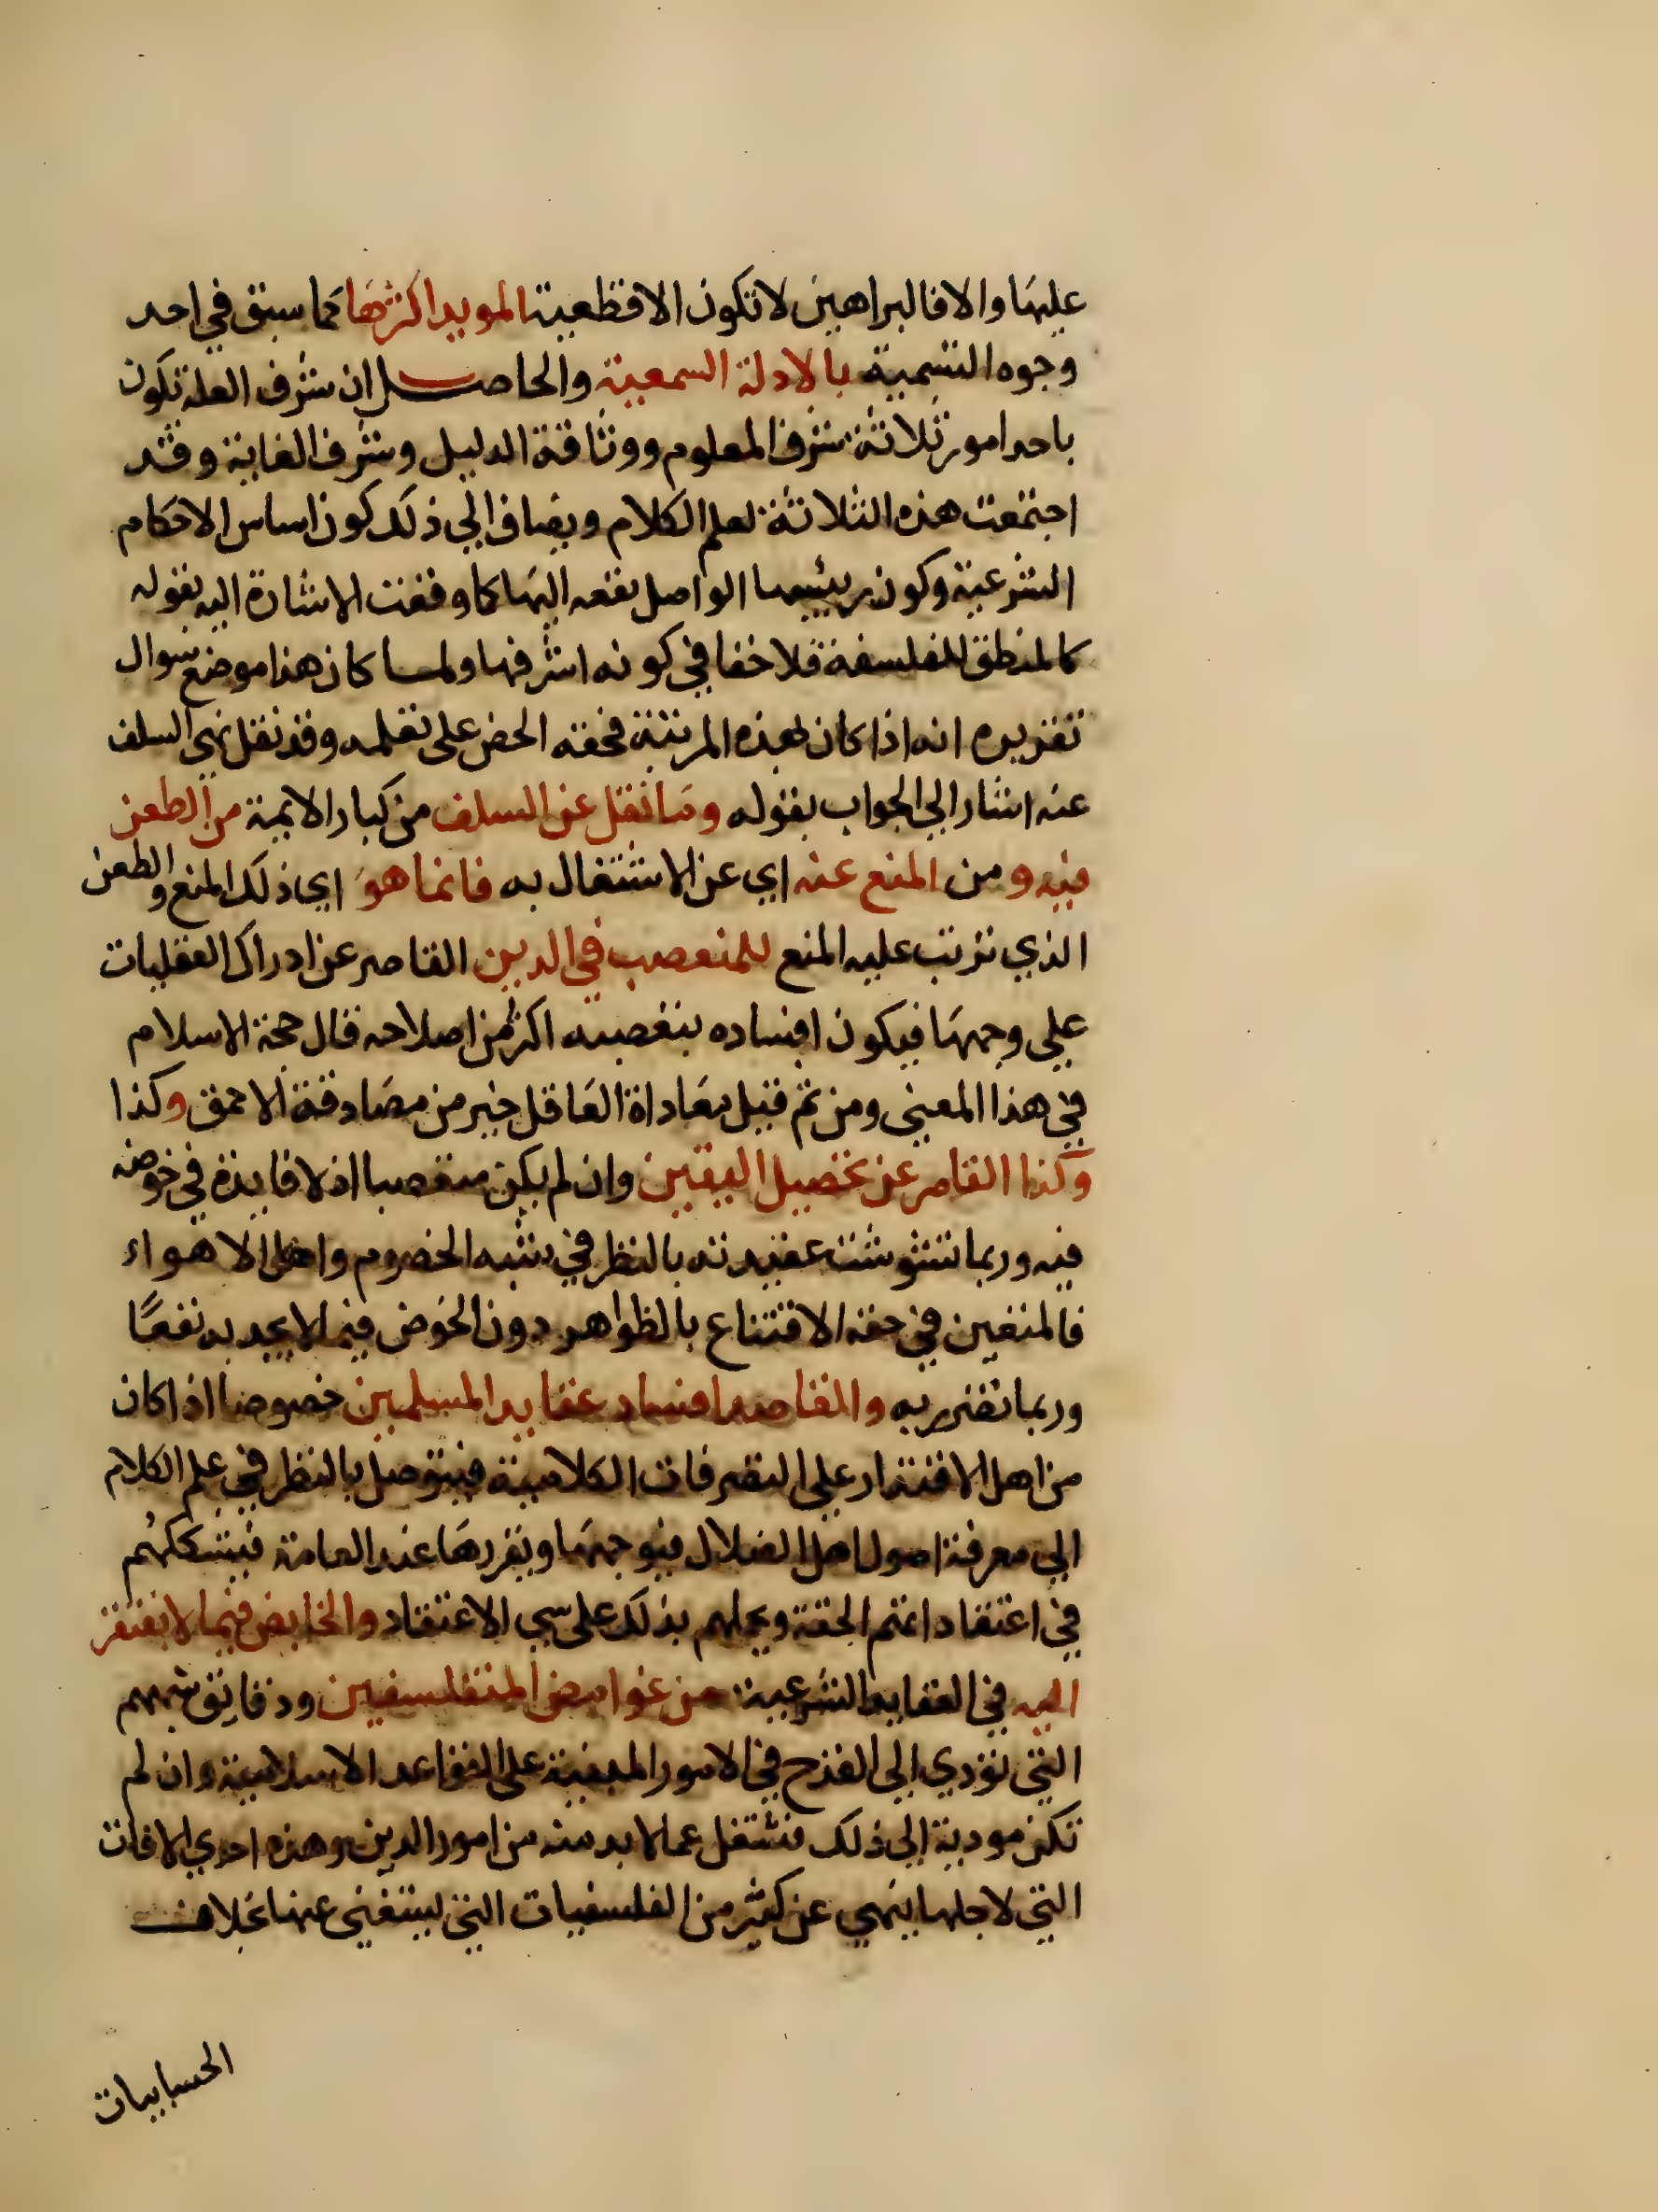 عليها والا فالبراهين لا تكون الا قطعية المويد اكثرها كما سبق في احد
وجوه التسمية بالادلة السمعية والحاصل ان شرف العلم تكون
باحد امور ثلاثة شرف المعلوم ووثاقة الدليل وشرف الغاية وقد
اجتمعت هذه الثلاثة لعلم الكلام ويضاف الي ذلك كون اساس الاحكام
الشرعية وكون رييسها الواصل نفعه اليها كما وقفت الاشارة اليه بقوله
كالمنطق للفلسفة فلا خفا في كونه اشرفها ولما كان هذا موضع سوال
تقريره انه اذا كان بهذه المرتبة فحقه الحض على تعلمه وقد نقل نهي السلف
عنه اشار الي الجواب بقوله وما نقل عن السلف من كبار الايمة من الطعن
فيه ومن المنع عنه اي عن الاشتغال به فانما هو اي ذلك المنع والطعن
الذي ترتب عليه المنع للمتعصب في الدين القاصر عن ادراك العقليات
علي وجهها فيكون افساده بتعصبه اكثر من اصلاحه قال حجة الاسلام
في هذا المعني ومن ثم قيل معاداة العاقل خير من مصادقة الاحمق وكذا
وكذا القاصر عن تحصيل اليقين وان لم يكن متعصبا اذ لا فايدة في خوضه
فيه وربما تشوشت عقيدته بالنظر في شبه الخصوم واهل الاهواء
فالمتعين في حقه الاقتناع بالظواهر دون الخوض فيما لا يجد به نفعًا
وربما تضرر به والقاصد افساد عقايد المسلمين خصوصا اذا كان
من اهل الاقتدار علي التصرفات الكلامية فيتوصل بالنظر في علم الكلام
الي معرفة اصول اهل الضلال فيوجهها ويقررها عند العامة فيشككهم
في اعتقاد ايمتهم الحقة ويحملهم بذلك على سي الاعتقاد والخايض فيما لا يفتقر
اليه في العقايد الشرعية من غوامض المتفلسفين ودقايق شبههم
التي تودي الي القدح في الامور المبنية على القواعد الاسلامية وان لم
تكن مودية الى ذلك فتشتغل عما لا بد منه من امور الدين وهذه احدي الافات
التي لاجلها ينهي عن كثير من الفلسفيات التي يستغني عنها بخلاف
الحسابيات